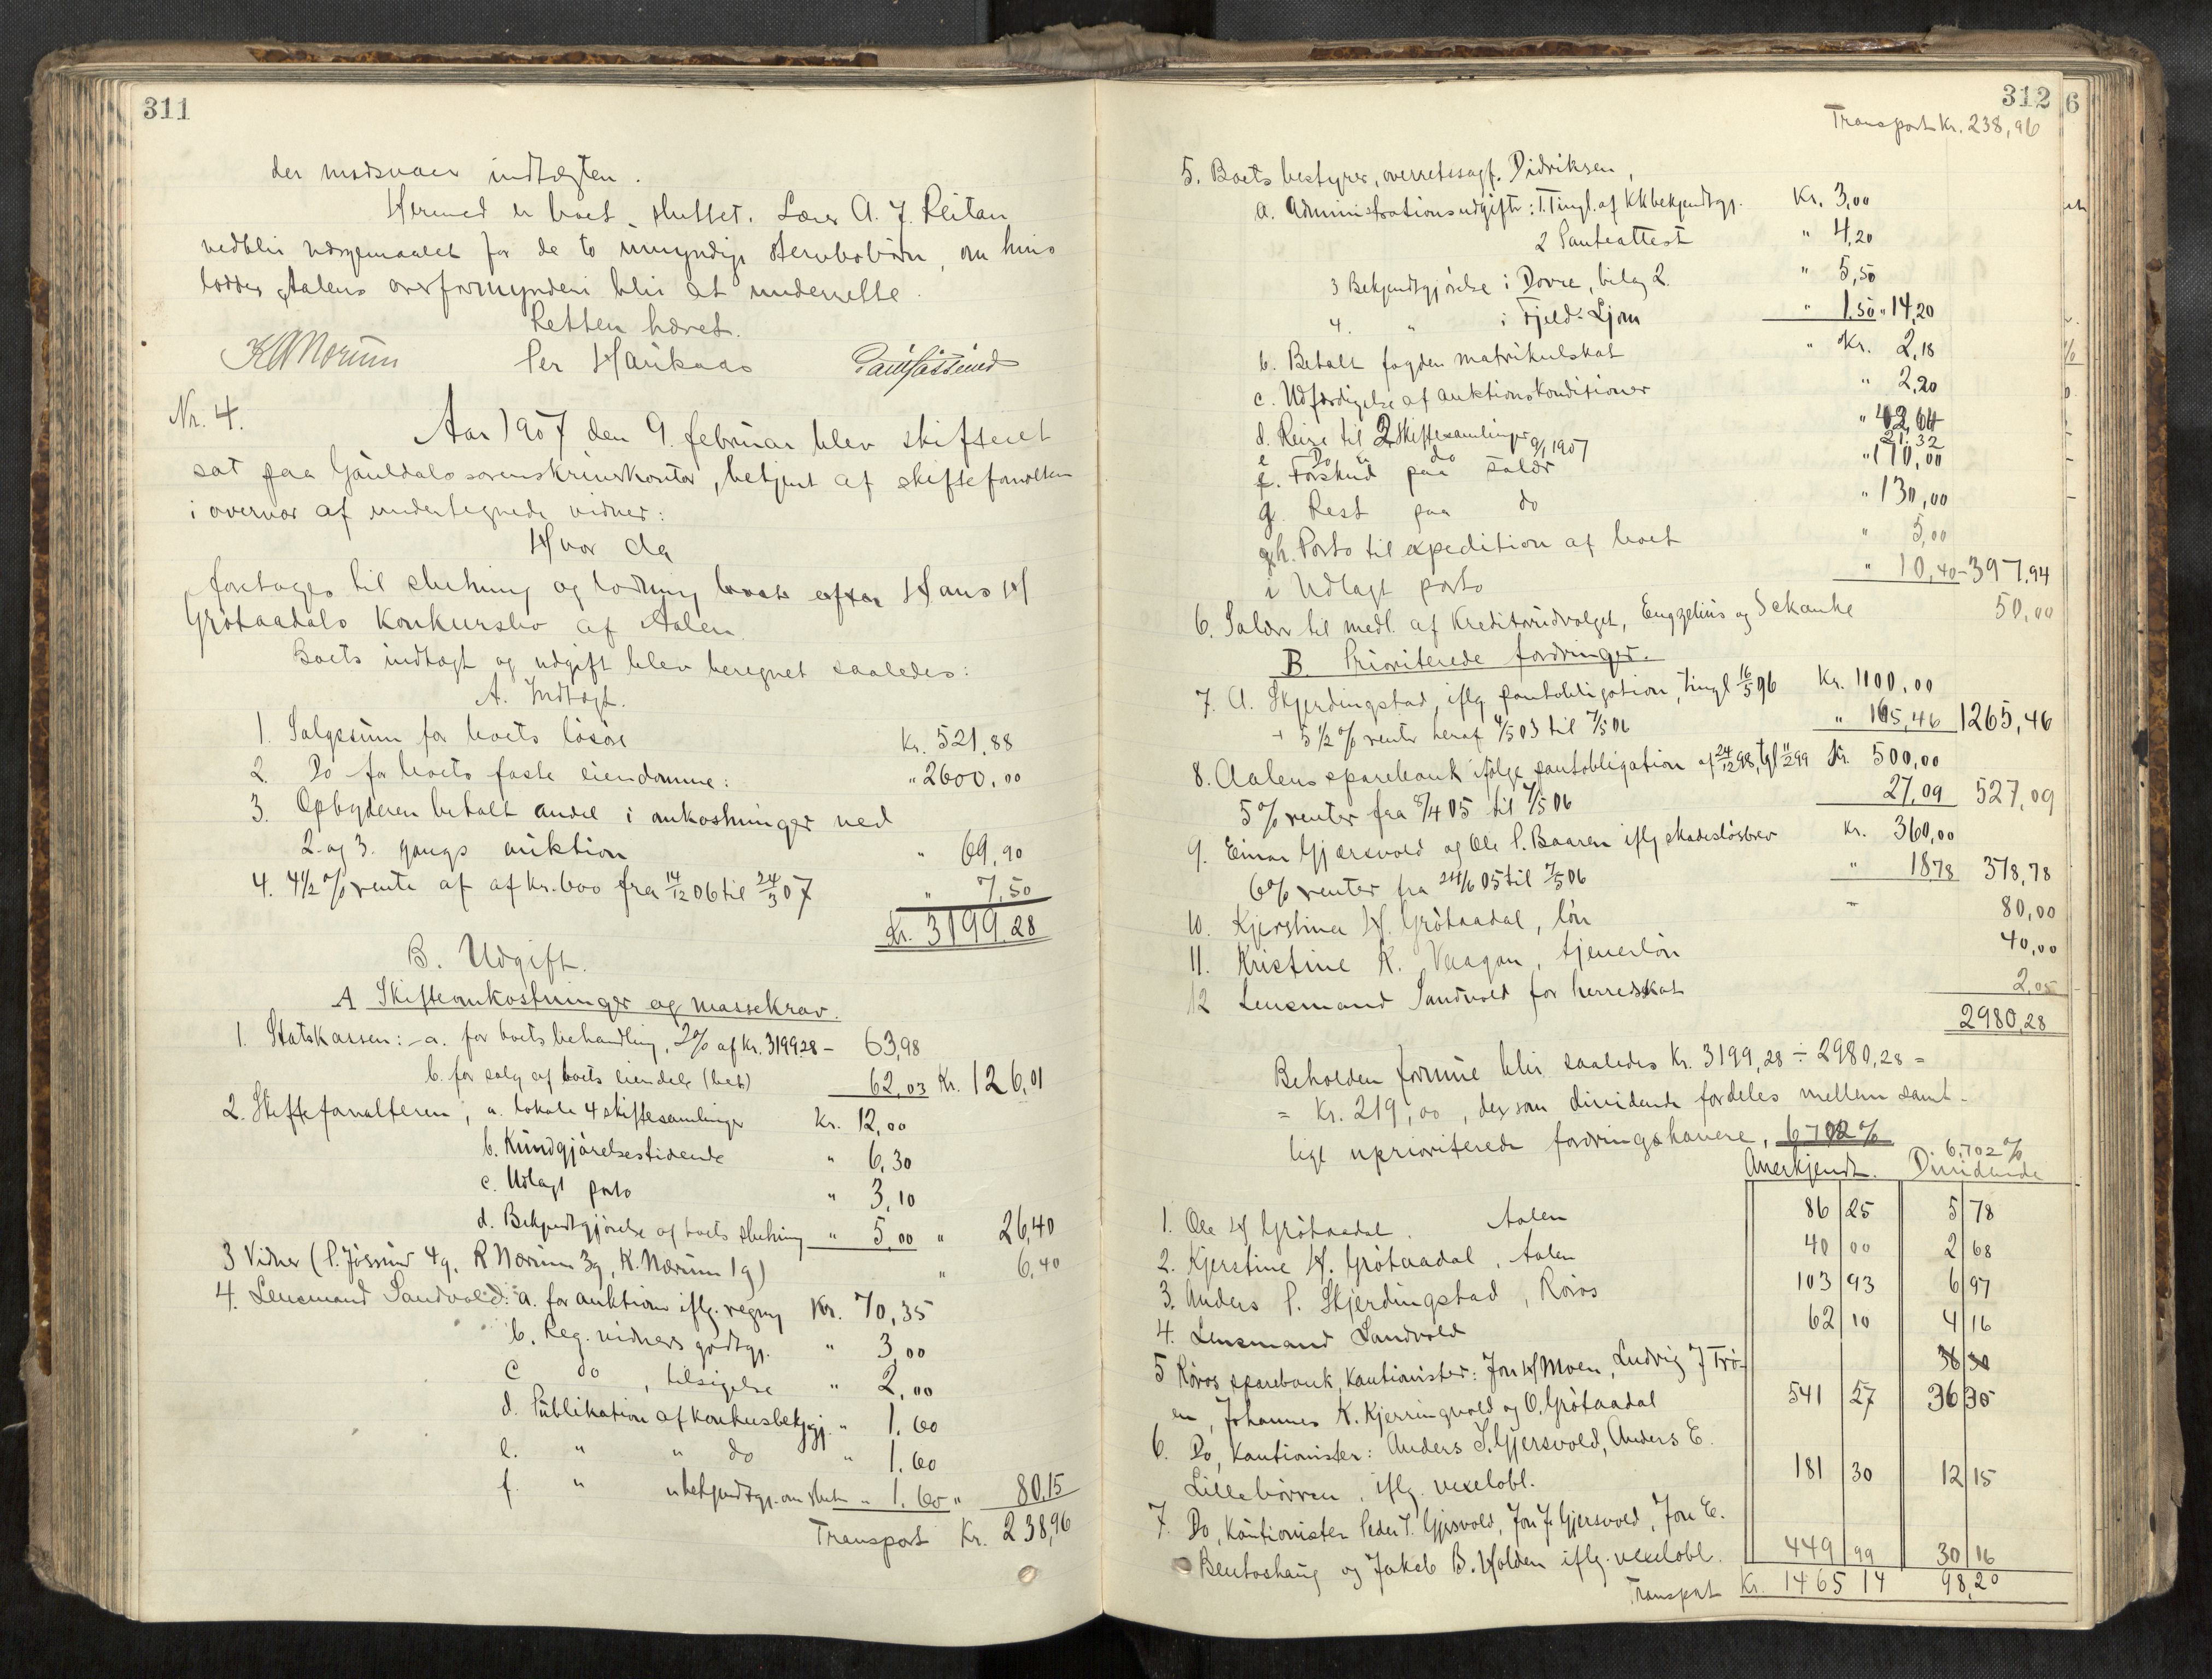 311
der modsvaer indtægten.
Hermed er boet sluttet. Lærer A. J. Reitan
vedblir værgemaalet for de to umyndige stervbobørn, om hvis
lodder Aalens overformynderi blir at underrette.
Retten hævet.
K A Norum Per Haukaas
Nr. 4.
Aar 1907 den 9. februar blev skifteret
sat paa Gauldals sorenskriverkontor, betjent af skifteforvalteren
i overvær af undertegnede vidner:
Hvor da
foretages til slutning og lodning boet efter Hans H
Grøtaadals konkursbo af Aalen.
Boets indtægt og udgift blev beregnet saaledes:
A. Indtægt.
1. Salgssum for boets løsøre Kr. 521,88
2. Do for boets faste eiendomme: " 2600,00
3. Opbyderen betalt andel i omkostninger ved
2. og 3. gangs auktion " 69,90
4. 4½ % rente af af kr. 600 fra 14/12 06 til 24/3 07 " 7,50
Kr. 3199,28
B. Udgift.
A Skifteomkostninger og massekrav.
1. Statskassen: - a. for boets behandling, 2% af kr. 3199.28 - 63,98
b. for salg af boets eiendele 62,03 Kr. 126,01
2. Skifteforvalteren, a. lokale 4 skiftesamlinger Kr. 12,00
b. Kundgjørelsestidende " 6,30
c. Udlagt porto " 3,10
d. Bekjendtgjørelse af boets slutning " 5,00 " 26,40
3 Vidner (P. Jøssund 4g, R Norum 3g, K. Norum 1g) " 6,40
4. Lensmand Sandvold: a. for auktion iflg. regng Kr. 70,35
b. Reg. vidners godtgj. " 3,00
c do , tilsigelse " 2,00
d. Publikation af konkursbekjgj. " 1.60
e. " " do " 1.60
f. " " bekjendtgj. om slutn " 1.60 " 80,15
Transport Kr. 238,96
312
6
Transport Kr. 238,96
5. Boets bestyrer, overretssagf. Didriksen,
a. Administrationsudgifter: 1. Tingl. af kkbekjendtgj. Kr. 3,00
2 Panteattest " 4,20
3 Bekjendtgjørelse i Dovre, bilag 2. " 5,50
4. " i Fjeld-Ljom " 1.50 " 14,20
b. Betalt fogden matrikulskat " Kr. 2,18
c. Udfærdigelse af auktionskonditioner " 2,20
d. Reise til 2 skiftesamlinger " 42,64
e Do " do 9/1 1907 21.32
f. Forskud paa salær " 170,00
g. Rest paa do " 130,00
h. Porto til expedition af boet " 5,00
i Udlagt porto " 10,40 - 397,94
6. Salær til medl. af kreditorudvalget, Engzelius og Sckanke 50,00
B Prioriterede fordringer.
7. A. Skjerdingstad, iflg pantobligation, tingl 16/5 96 Kr. 1100,00
+ 5 1/2 % renter heraf 4/5 03 til 7/5 06 " 165,46 1265,46
8. Aalens sparebank ifølge pantobligation af 24/12 98, tgl 11/2 99 Kr. 500,00
5 % renter fra 8/4 05 til 7/5 06 27,09 527,09
9. Einar Gjersvold og Ole P. Baaren iflg skadesløsbrev Kr. 360,00
6% renter fra 24/6 05 til 7/5 06 " 18,78 378,78
10. Kjerstine H. Grötaadal, løn 80,00
11. Kristine K. Vaagan, tjenerløn 40,00
12 Lensmand Sandvold for herredskat 2,05
2980,28
Beholden formue blir saaledes Kr. 3199,28 ÷ 2980,28 =
= Kr. 219,00, der som dividende fordeles mellem samt-
lige uprioriterede fordringshavere, 6702%
6.702%
Anerkjendt. Dividende
1. Ole H Grötaadal. Aalen 86 25 5 78
2. Kjerstine H. Grötaadal, Aalen 40 00 2 68
3. Anders P. Skjerdingstad, Röros 103 93 6 97
4. Lensmand Sandvold 62 10 4 16
5 Röros sparebank, kautionister: Jon H Moen, Ludvig J Trö-
en, Johannes K. Kjerringvold og O. Grötaadal 541 27 36 30
6. Do, kautionister: Anders J. Gjersvold, Anders E.
Lillebörren, iflg. vexelobl. 181 30 12 15
7. Do, kautionister Peder J. Gjersvold, Jon J. Gjersvold, Jon E.
Bentashaug og Jakob B. Holden iflg. vexelobl. 449 99 30 16
Transport Kr. 1465 14 98,20